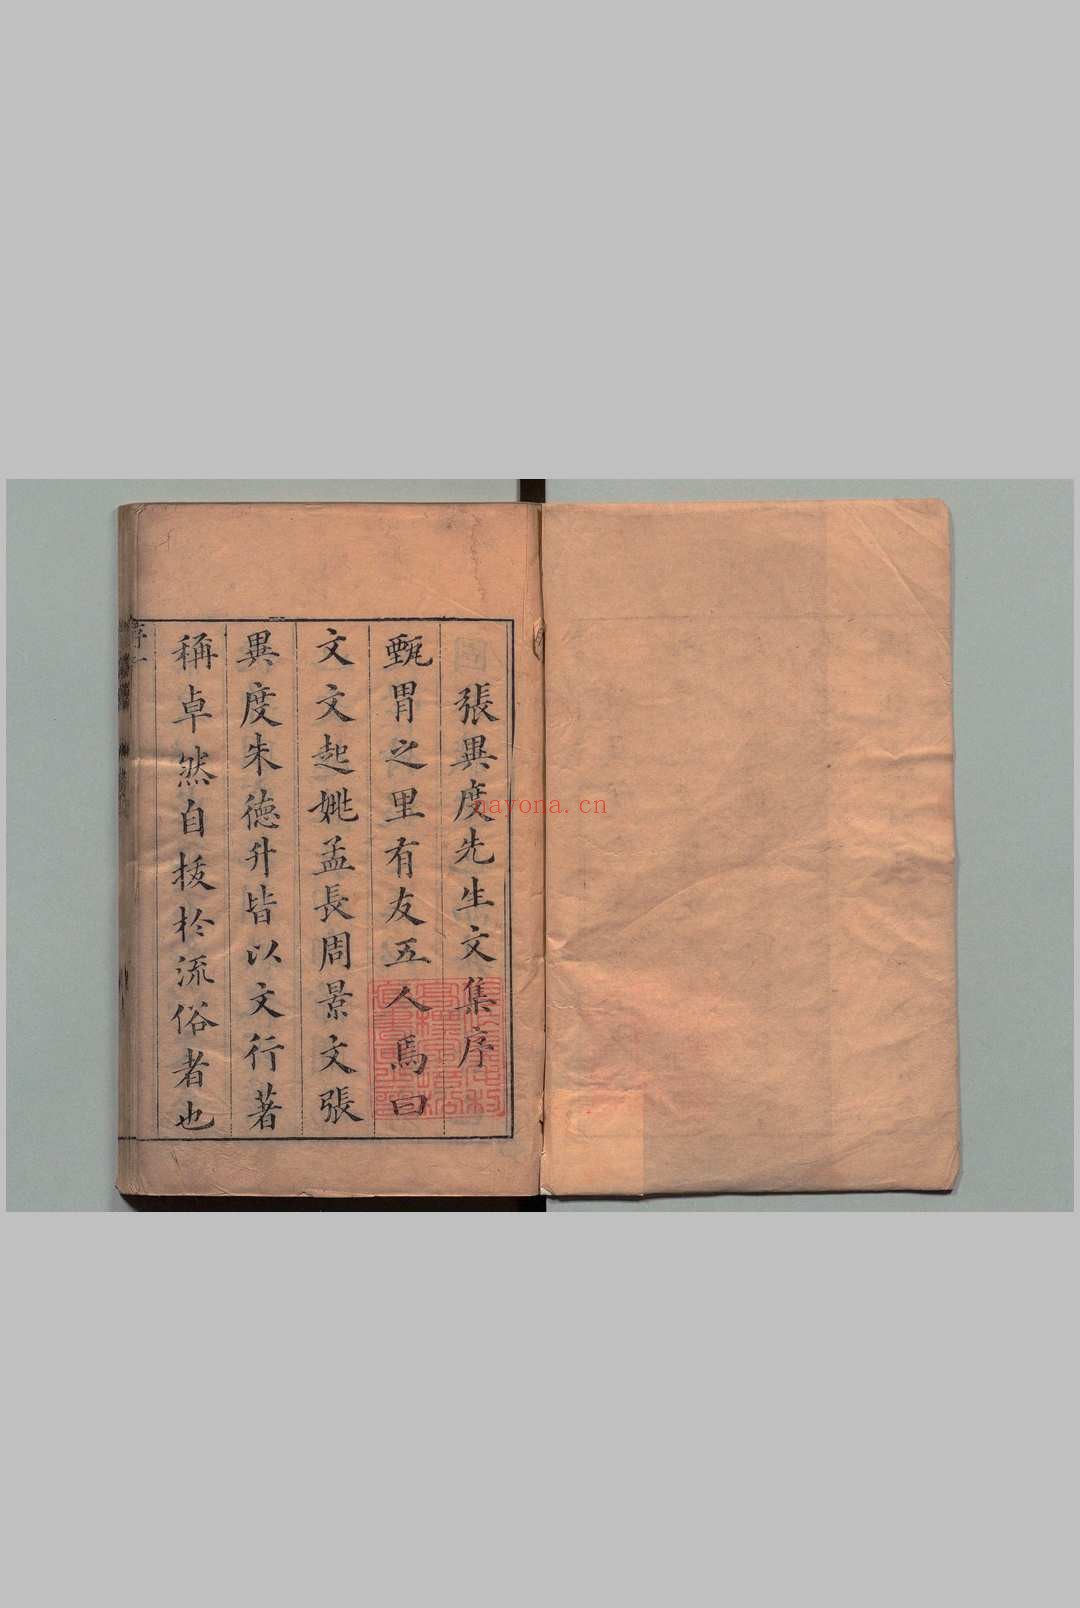 張異度先生文集序
甄冑之里有友五人焉曰
文文起姚孟長周景文張
異度朱德升皆以文行著
稱卓然自拔於流俗者也
序一
nayona.cn